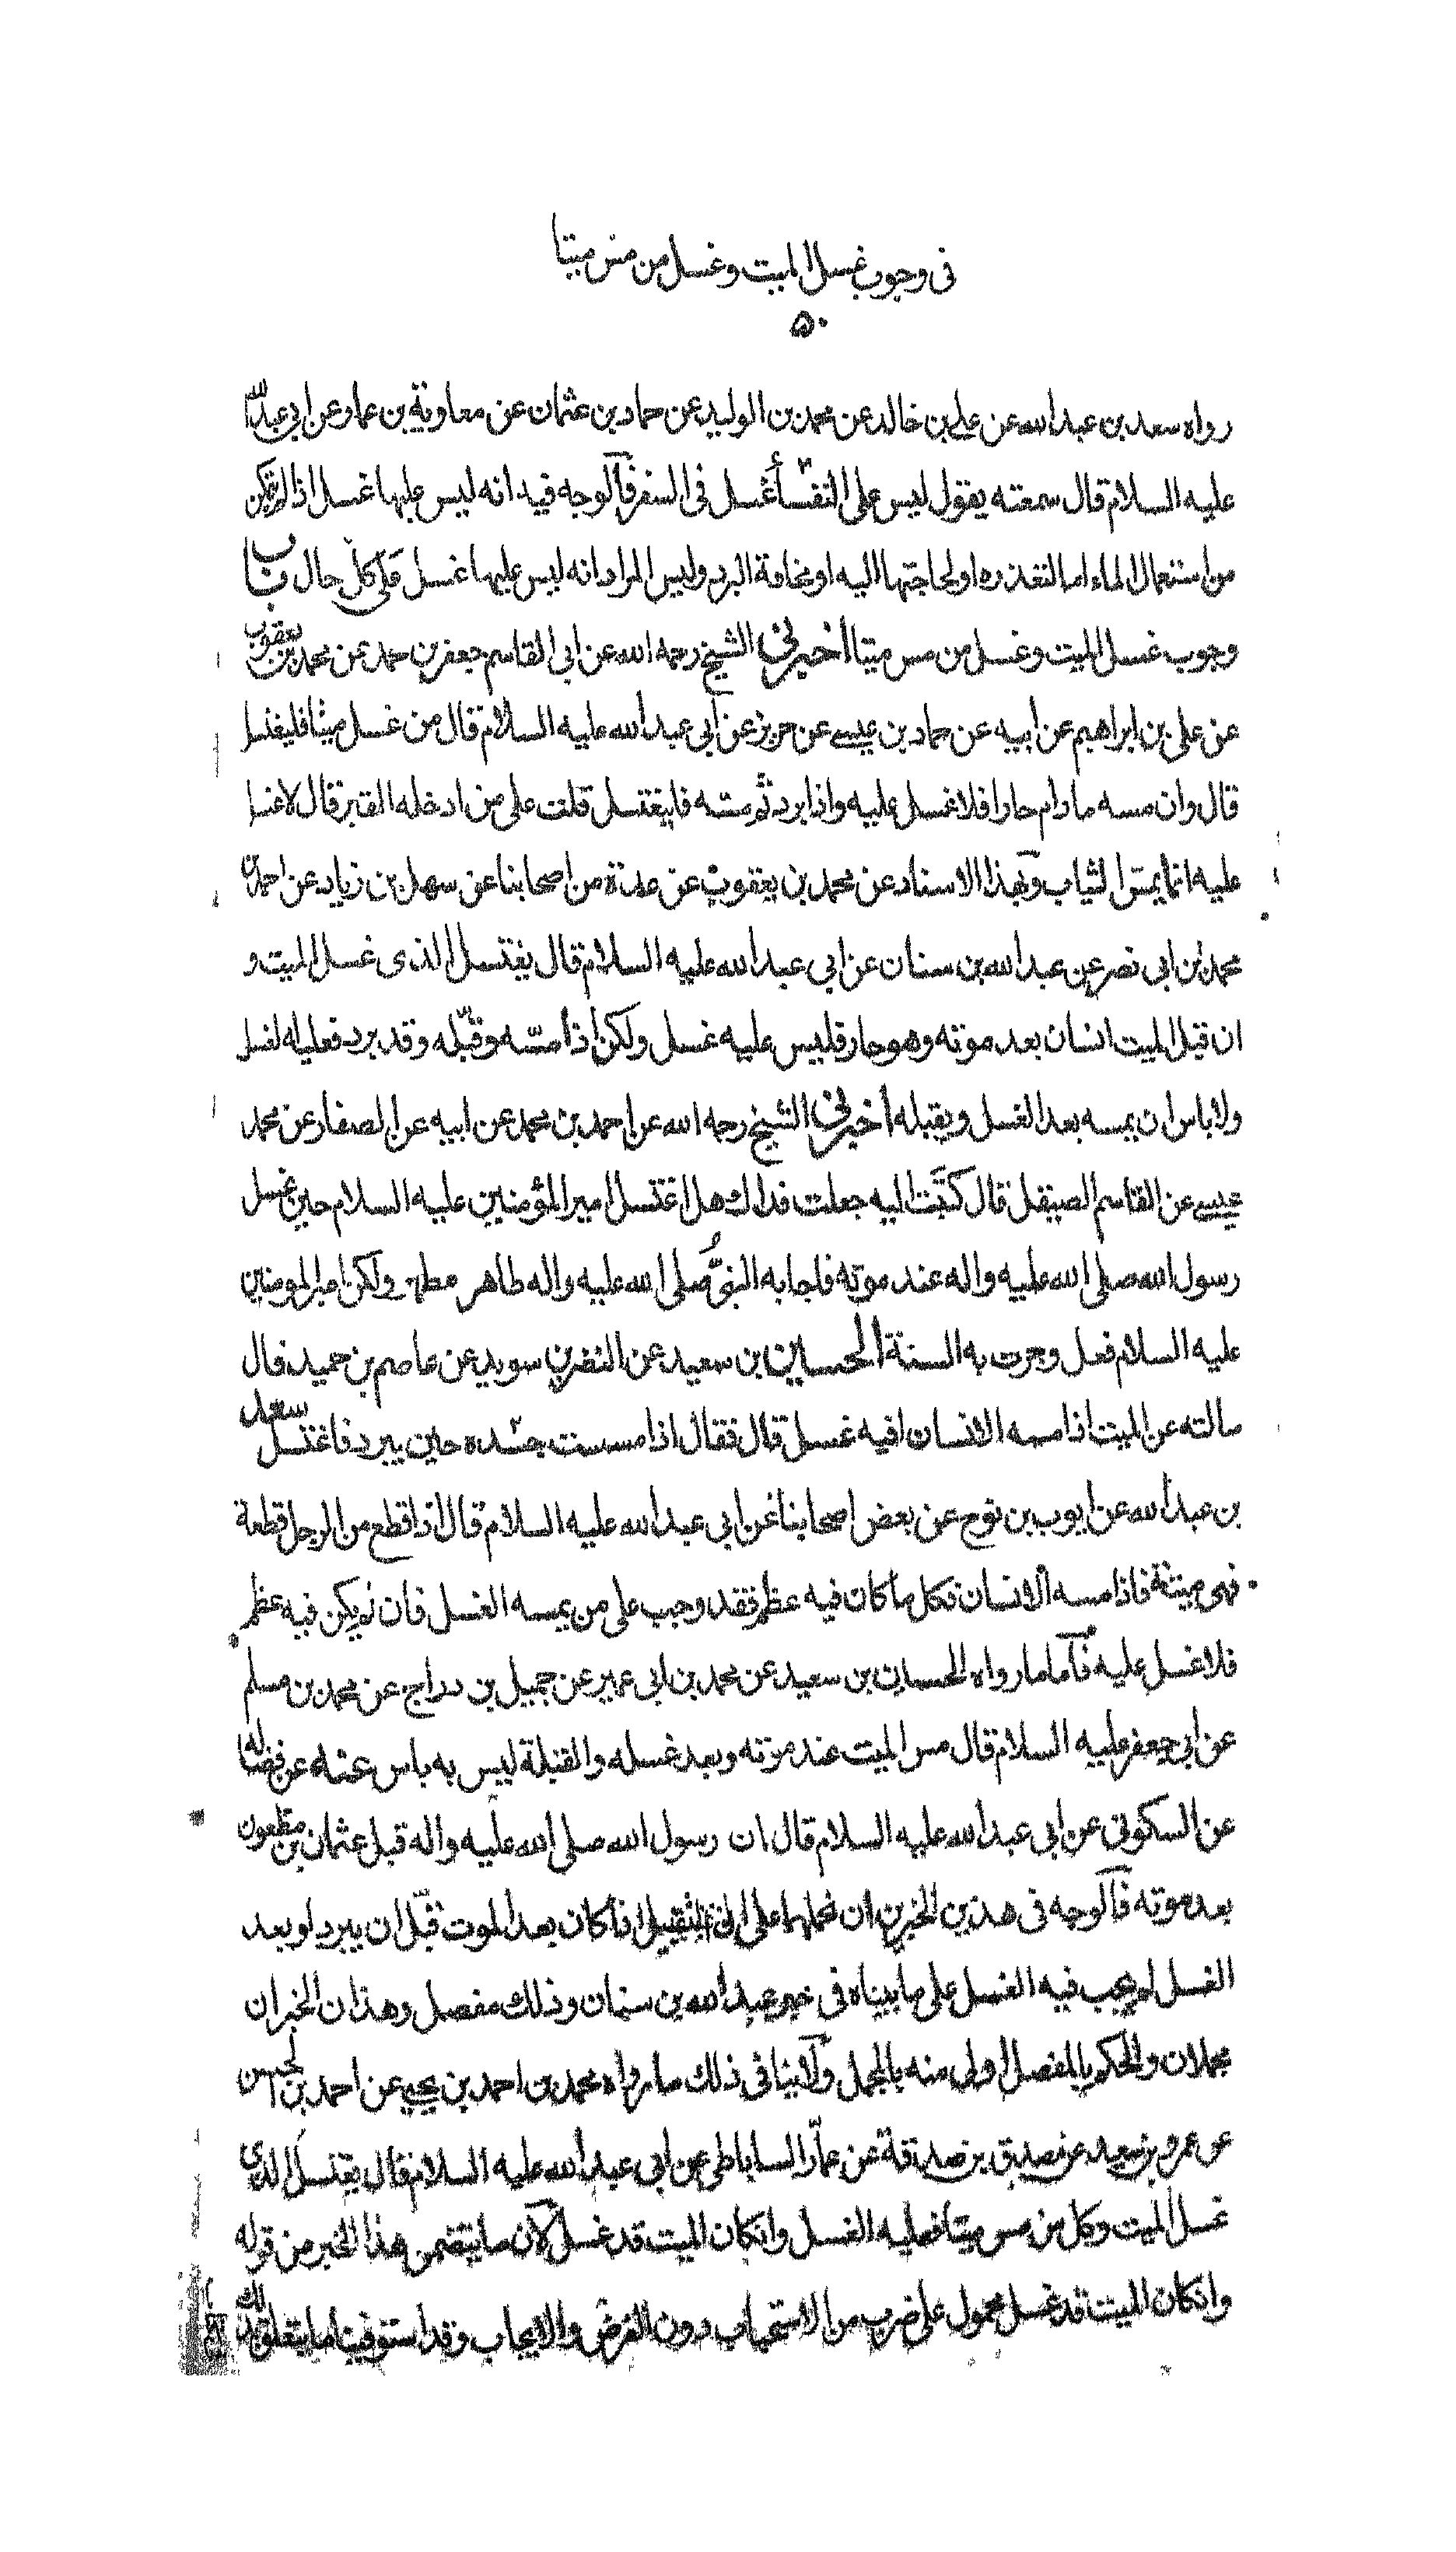 فى وجوب غسل الميت وغسل من مس ميتا
٥٠
رواه سعد بن عبدالله عن على بن خالد عن محمد بن الوليد عن حماد بن عثمان عن معاوية بن عمار عن ابى عبدالله
عليه السلام قال سمعته يقول ليس على النفسأ غسل فى السفر فالوجه فيه انه ليس عليها غسل اذا لم يتمكن
من استعمال الماء اما لتعذره او لحاجتها اليه او مخافة البرد وليس المراد انه ليس عليها غسل على كل حال باب
وجوب غسل الميت وغسل من مس ميتا اخبرنى الشيخ رحمه الله عن ابى القاسم جعفر بن محمد عن محمد بن يعقوب
عن على بن ابراهيم عن ابيه عن حماد بن عيسى عن حريز عن ابى عبد الله عليه السلام قال من غسل ميتا فليغتسل
قال وان مسه مادام حارا فلا غسل عليه واذا برد ثم مسّه فليغتسل قلت على من ادخله القبر قال لا غسل
عليه انما يمس الثياب وبهذا الاسناد عن محمد بن يعقوب عن عدة من اصحابنا عن سهل بن زياد عن احمد بن
محمد بن ابى نصر عن عبدالله بن سنان عن ابى عبدالله عليه السلام قال يغتسل الذى غسل الميت و
ان قبل الميت انسان بعد موته وهو حار فليس عليه غسل ولكن اذا مسّه وقبّله وقد برد فعليه الغسل
ولا باس ان يمسه بعد الغسل ويقبله اخبرنى الشيخ رحمه الله عن احمد بن محمد عن ابيه عن الصفار عن محمد
عيسى عن القاسم الصيقل قال كتبت اليه جعلت فداك هل اغتسل امير المؤمنين عليه السلام حين غسل
رسول الله صلى الله عليه واله عند موته فاجابه النبىّ صلى الله عليه واله طاهر مطهر ولكن امير المومنين
عليه السلام فعل وجرت به السنة الحسين بن سعيد عن النضر بن سويد عن عاصم بن حميد قال
سالته عن الميت اذا مسه الانسان افيه غسل قال فقال اذا مسست جسده حين يبرد فاغتسل سعد
بن عبدالله عن ايوب بن نوح عن بعض اصحابنا عن ابى عبدالله عليه السلام قال اذا قطع من الرجل قطعة
فهى ميتة فاذا مسه الانسان فكل ما كان فيه عظم فقد وجب على من يمسه الغسل فان لم يكن فيه عظم
فلا غسل عليه فاما ما رواه الحسين بن سعيد عن محمد بن ابى عمير عن جميل بن دراج عن محمد بن مسلم
عن ابى جعفر عليه السلام قال مس الميت عند موته وبعد غسله والقبلة ليس به باس عنه عن فضاله
عن السكونى عن ابى عبدالله عليه السلام قال ان رسول الله صلى الله عليه واله قبل عثمان بن مظعون
بعد موته فالوجه فى هذين الخبرين ان نحملهما على ان التقبيل اذا كان بعد الموت قبل ان يبرد او بعد
الغسل لم يجب فيه الغسل على ما بيناه فى خبر عبدالله بن سنان وذلك مفصل وهذان الخبران
مجملان والحكم بالمفصل اولى منه بالمجمل ولا ينافى ذلك ما رواه محمد بن احمد بن يحيى عن احمد بن الحسن
عن عمرو بن سعيد عن مصدق بن صدقة عن عمار الساباطى عن ابى عبدالله عليه السلام قال يغتسل الذى
غسل الميت وكل من مس ميتا فعليه الغسل وانكان الميت قد غسل لان ما يتضمن هذا الخبر من قوله
وانكان الميت قد غسل محمول على ضرب من الاستحباب دون الفرض والايجاب وقد استوفينا ما يتعلق بذلك